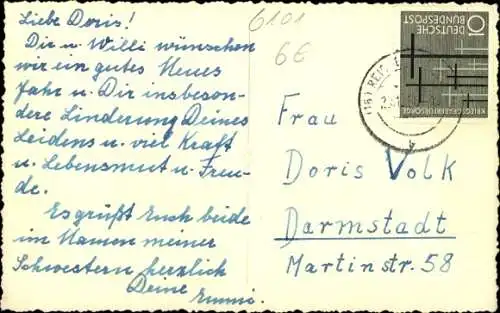 Liebe Doris!
Dir u. Willi wünschen
wir ein gutes Neues
Jahr u. Dir insbeson-
dere Linderung Deines
Leidens u. viel Kraft
u. Lebensmut u. Freu-
de.
Es grüßt Euch beide
im Namen meiner
Schwestern herzlich
Deine
Emmi.
6101
6€
10
DEUTSCHE
BUNDESPOST
KRIEGSGRÄBERFÜRSORGE
b
Frau
Doris Volk
Darmstadt
Martinstr. 58